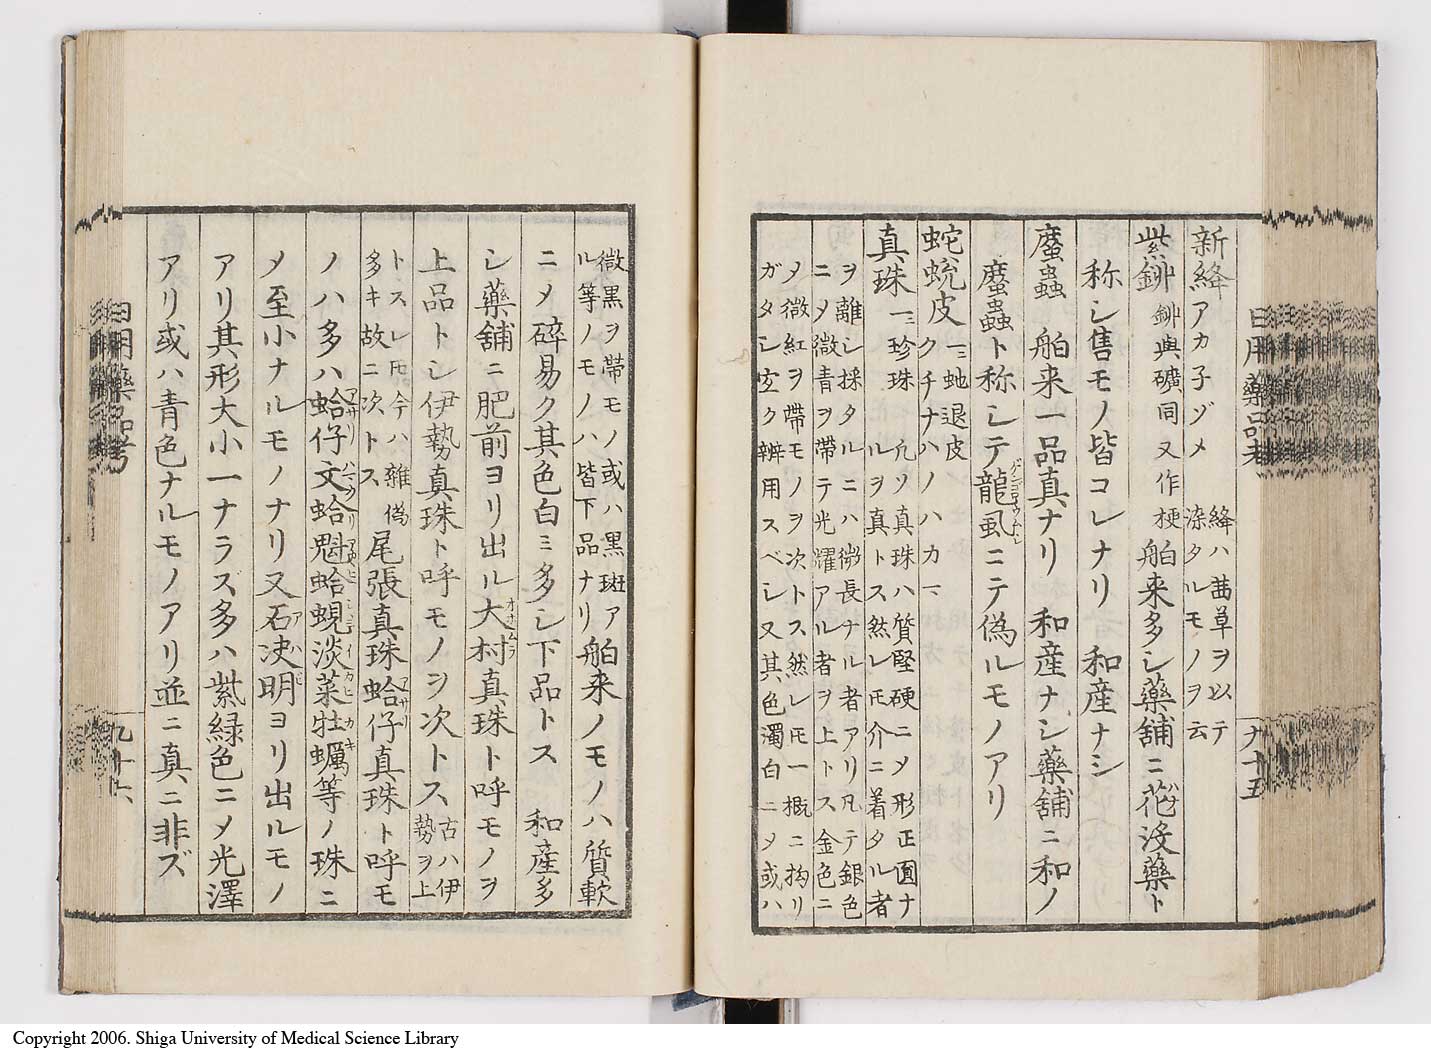 新絳アカ子ゾメ 絳ハ茜草ヲ以テ
染タルモノヲ云
紫鉚 鉚與礦同又作梗 舶来多シ藥舗ニ花没藥ト
称シ售モノ皆コレナリ 和産ナシ
䗪蟲 舶来一品真ナリ 和産ナシ藥舗ニ和ノ
䗪蟲ト称シテ龍虱ニテ偽ルモノアリ
ゲンゴロウムシ
蛇蛻皮 一ニ虵退皮 クチナハノハカマ
真珠 一ニ珍珠 凡ソ真珠ハ質堅硬ニメ形正圓ナ
ルヲ真トス然レ𪜈介ニ着タル者
ヲ離シ採タルニハ微長ナル者アリ凡テ銀色
ニメ微青ヲ帯テ光耀アル者ヲ上トス金色ニ
メ微紅ヲ帯モノヲ次トス然レ𪜈一概ニ拘リ
ガタシ宜ク辨用スベシ又其色濁白ニメ或ハ
日用藥品考
九十五
微黒ヲ帯モノ或ハ黒斑ア
ル等ノモノハ皆下品ナリ 舶来ノモノハ質軟
ニメ碎易ク其色白ミ多シ下品トス 和産多
シ藥舗ニ肥前ヨリ出ル大村真珠ト呼モノヲ
オオムラ
上品トシ伊勢真珠ト呼モノヲ次トス 古ハ伊
勢ヲ上
トスレ𪜈今ハ雜偽
多キ故ニ次トス 尾張真珠蛤仔真珠ト呼モ
アサリ
ノハ多ハ蛤仔文蛤魁蛤蜆淡菜牡蠣等ノ珠ニ
アサリ ハマグリ アカヾヒ シヾミ イカヒ カキ
メ至小ナルモノナリ又石决明ヨリ出ルモノ
アハビ
アリ其形大小一ナラズ多ハ紫緑色ニメ光澤
アリ或ハ青色ナルモノアリ並ニ真ニ非ズ
日用藥品考
九十六
Copyright 2006. Shiga University of Medical Science Library